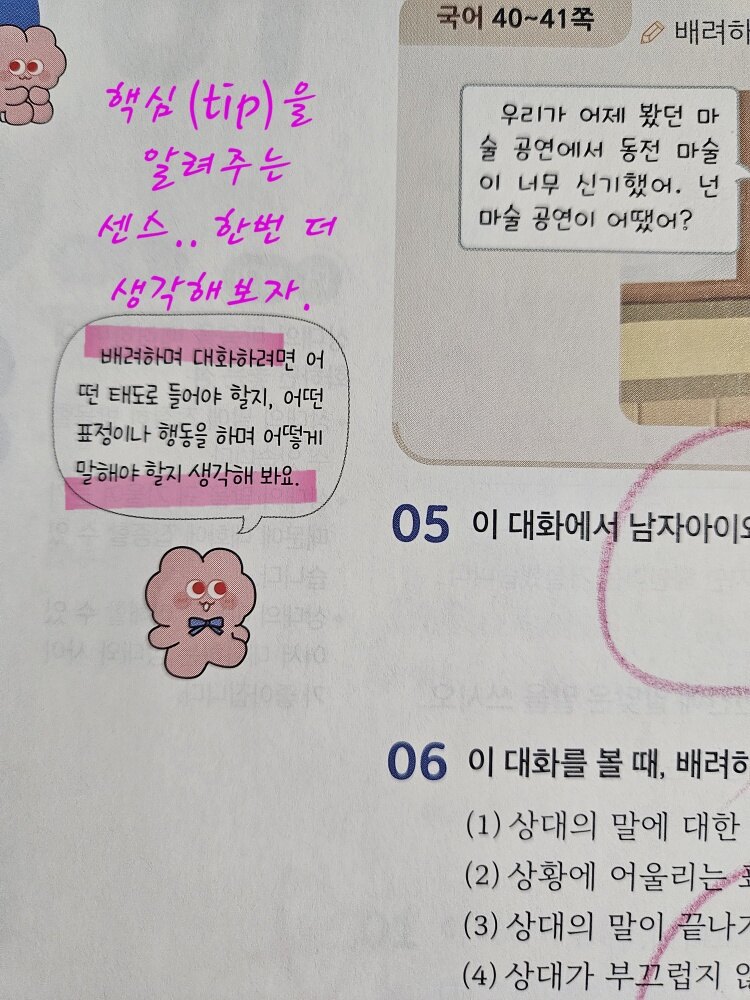 국어 40~41쪽
배려하
우리가 어제 봤던 마
술 공연에서 동전 마술
이 너무 신기했어. 넌
마술 공연이 어땠어?
핵심(tip)을
알려주는
센스.. 한번 더
생각해보자.
배려하며 대화하려면 어
떤 태도로 들어야 할지, 어떤
표정이나 행동을 하며 어떻게
말해야 할지 생각해 봐요.
05 이 대화에서 남자아이
06 이 대화를 볼 때, 배려하
(1) 상대의 말에 대한
(2) 상황에 어울리는
(3) 상대의 말이 끝나기
(4) 상대가 부끄럽지